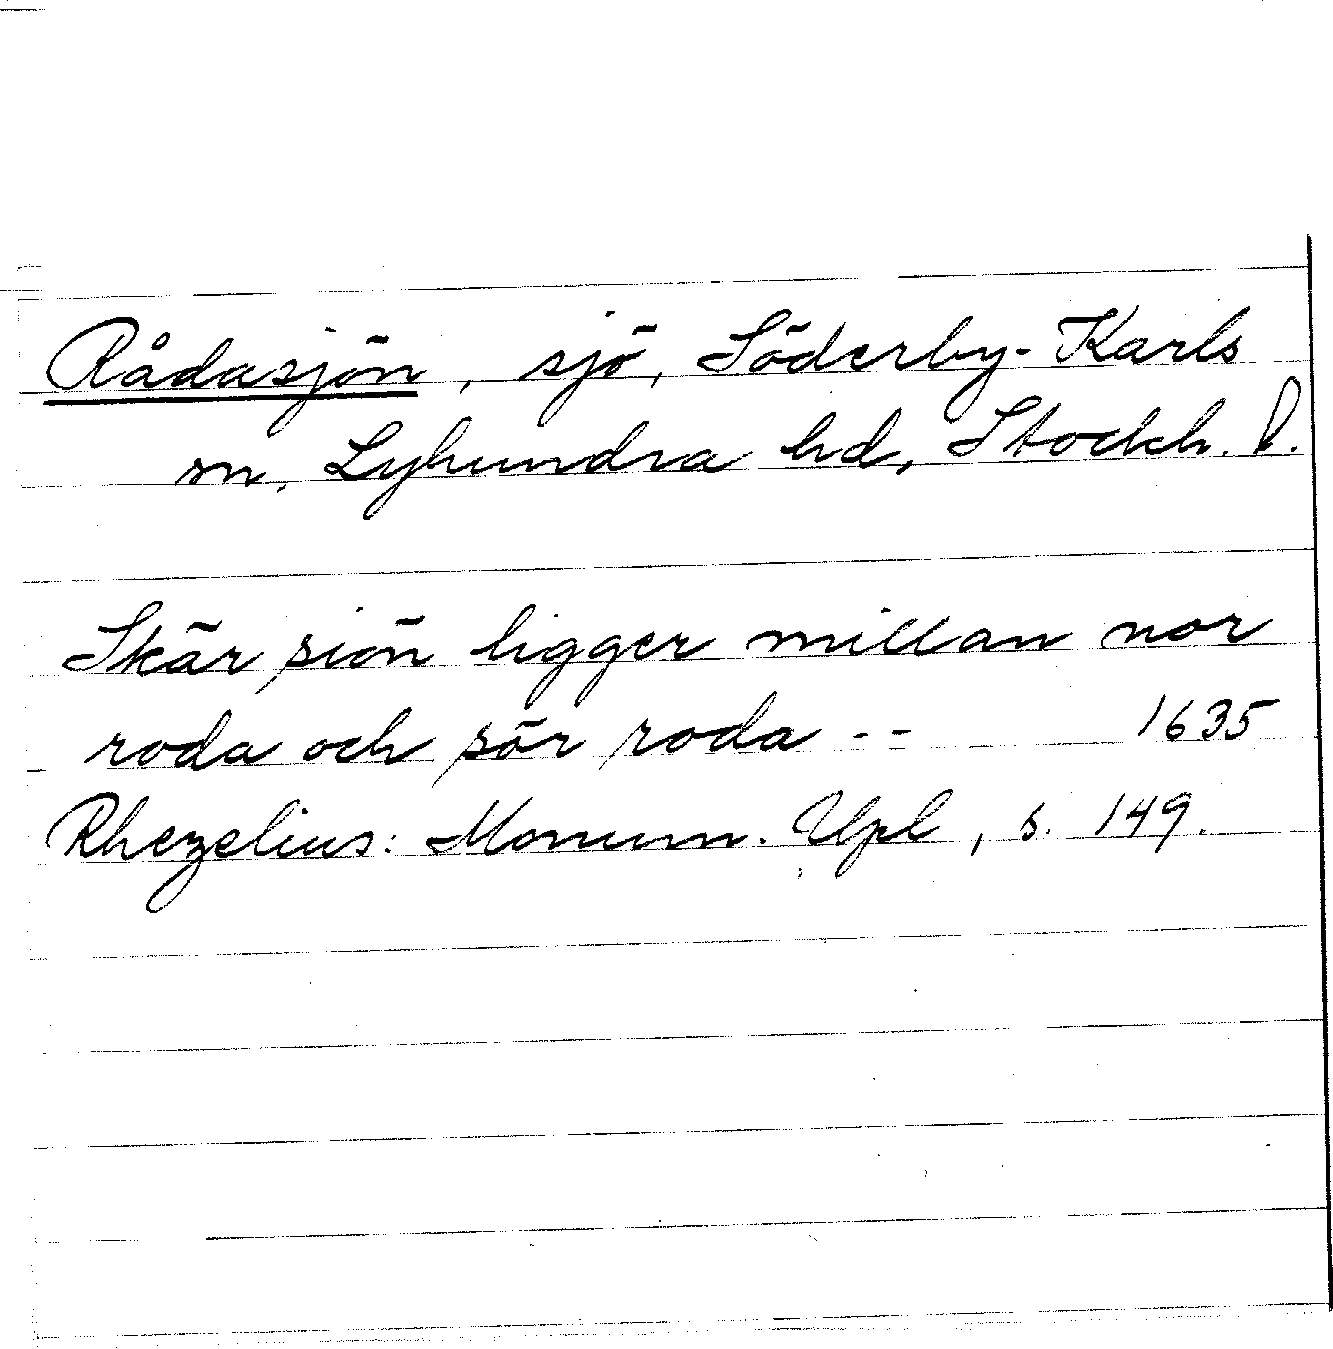 Rådasjön, sjö, Söderby-Karls
sn, Lyhundra hd, Stockh. l.
Skär siön ligger millan nor
roda och sör roda -- 1635
Rhezelius: Monum. Upl, s. 149.